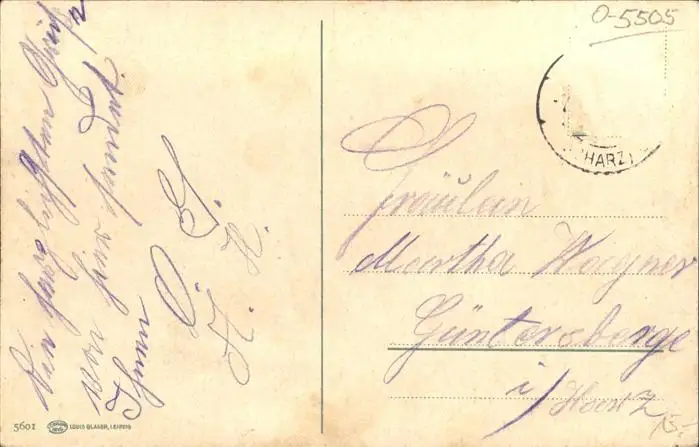 Die herzlichsten Grüße
von hier sendet
Ihnen
O. G.
H. H.
O-5505
(HARZ)
Fräulein
Martha Wagner
Güntersberge
i/ Harz
15.-
5601 LOUIS GLASER, LEIPZIG